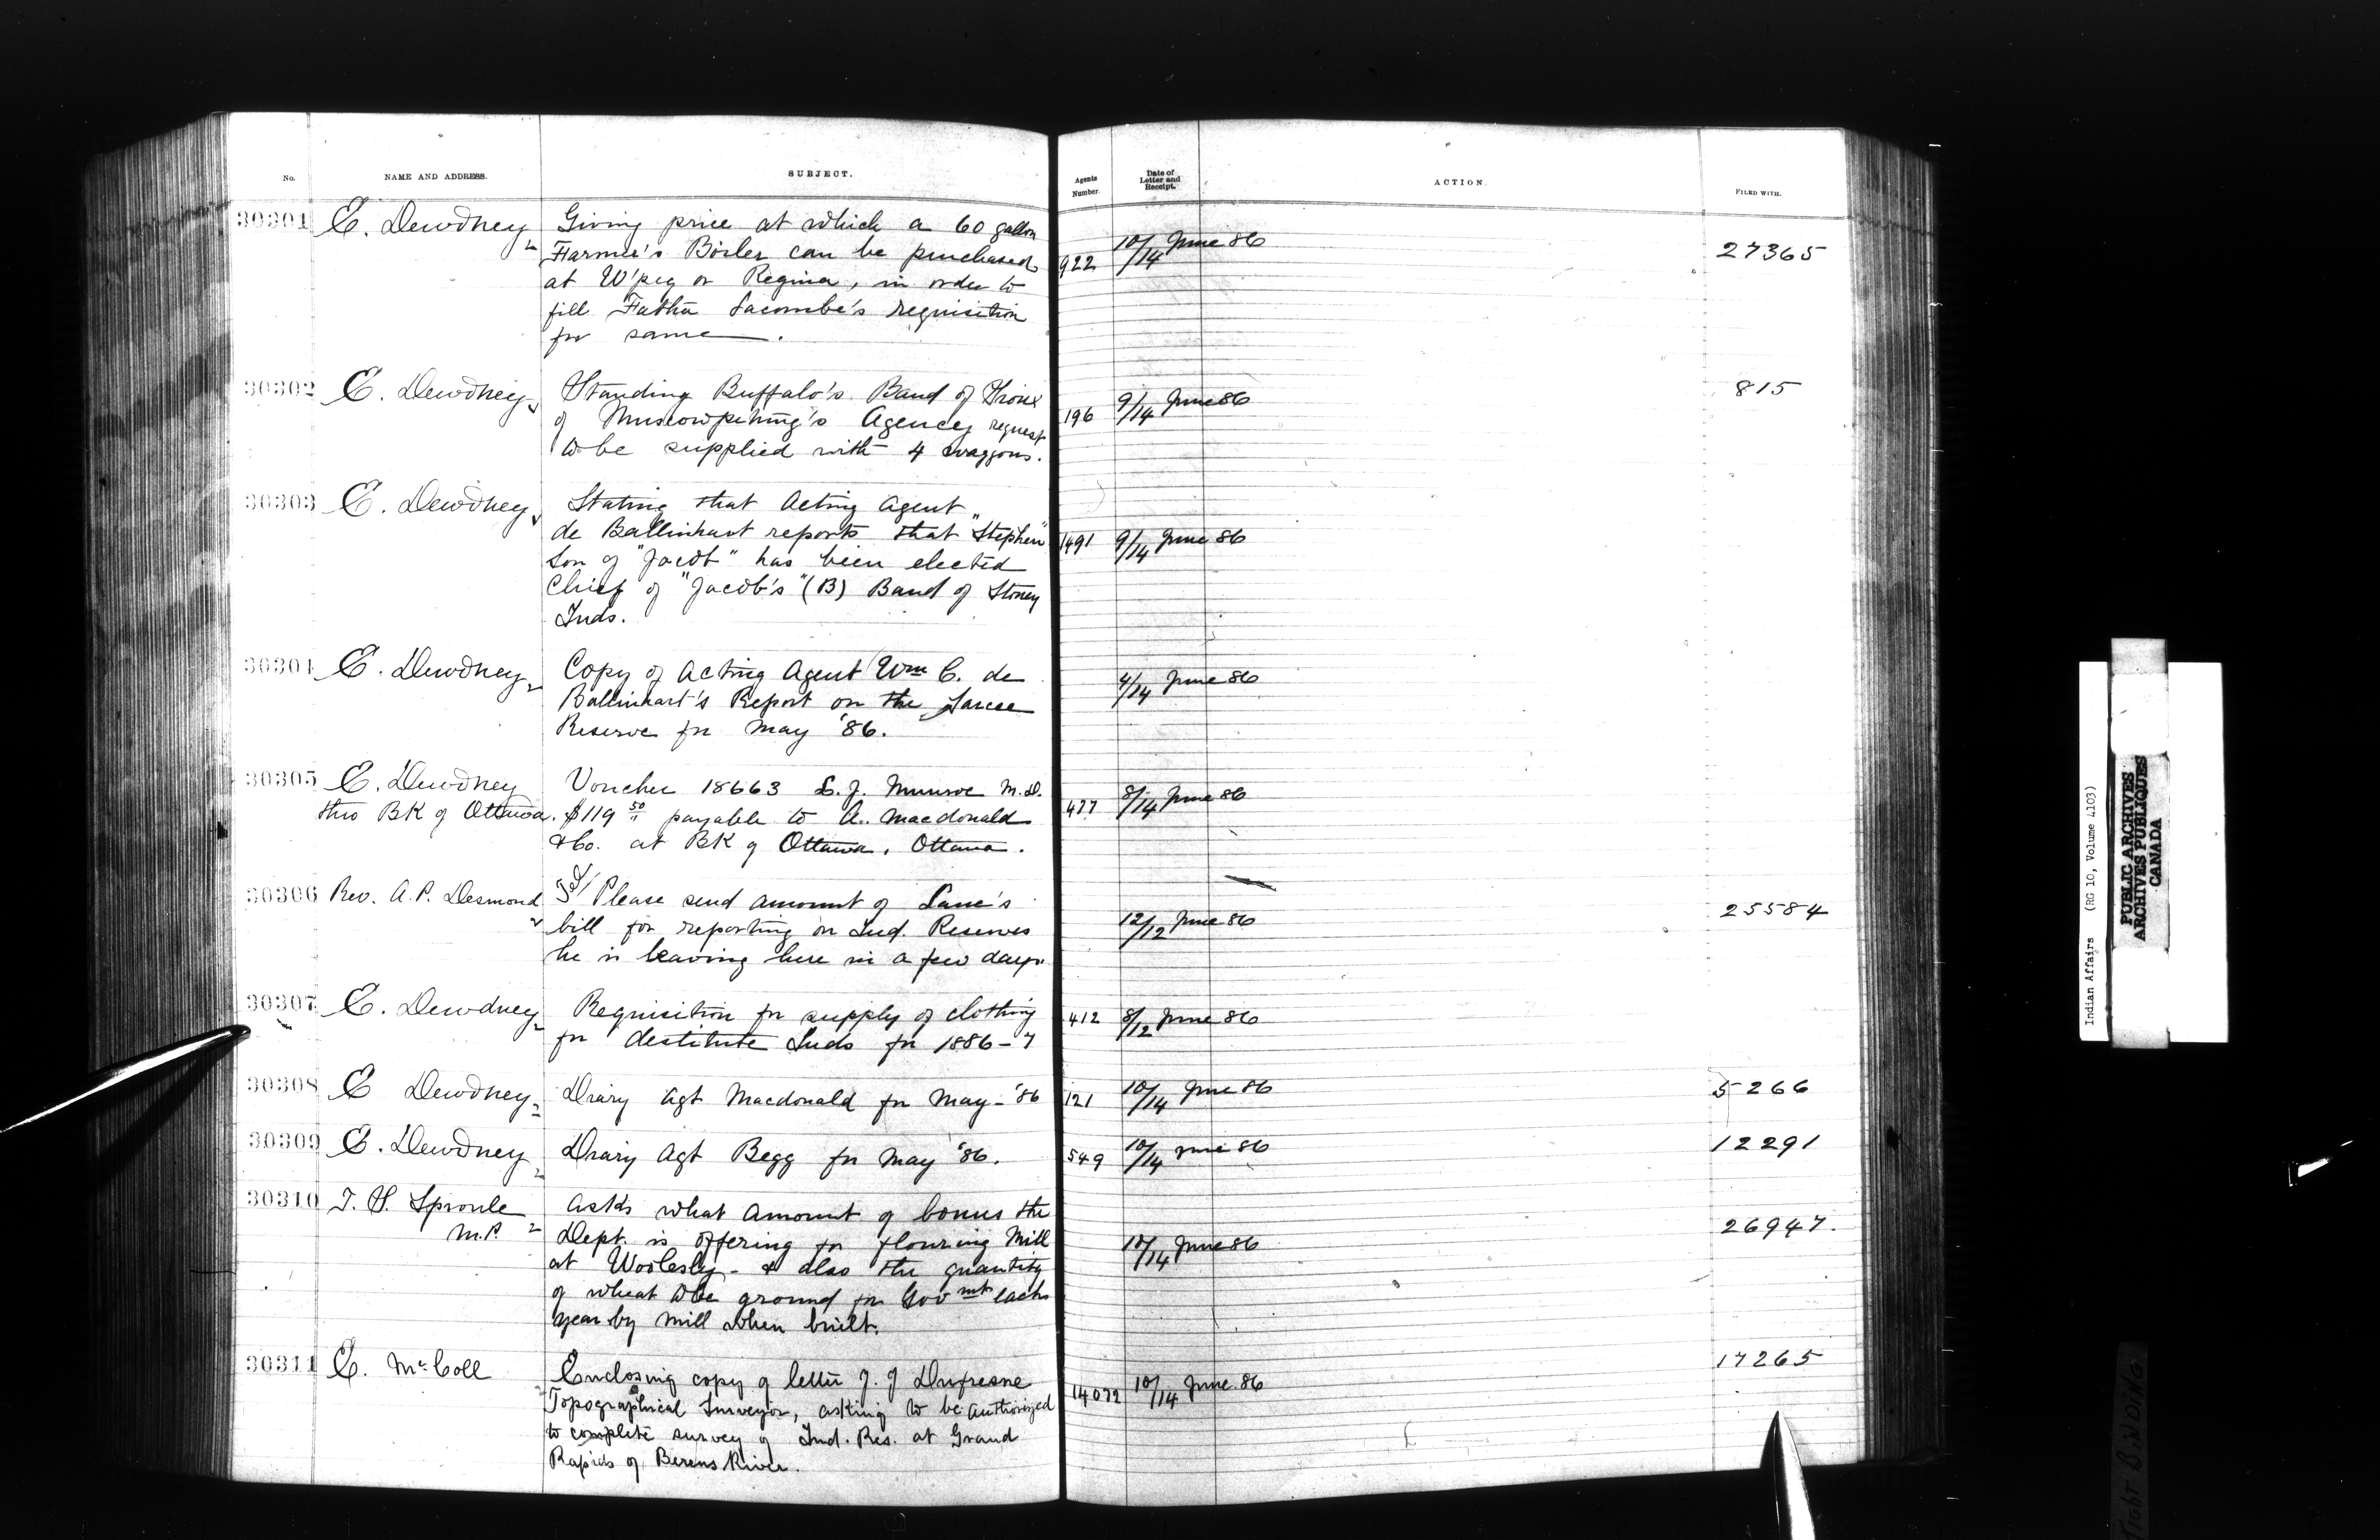 No. NAME AND ADDRESS. SUBJECT. Agents Number. Date of Letter and Receipt. ACTION. FILED WITH.
30301 E. Dewdney Giving price at which a 60 gallon
Farmer's Boiler can be purchased 922 10/14 June 86 27365
at W'peg or Regina, in order to
fill Father Lacombe's requisition
for same.
30302 E. Dewdney Standing Buffalo's Band of Sioux 9/14 June 86 815
of Muscowpetung's Agency request 196
to be supplied with 4 waggons.
30303 E. Dewdney Stating that Acting Agent
de Ballinhart reports that "Stephen" 1491 9/14 June 86
Son of "Jacob" has been elected
Chief of "Jacob's" (B) Band of Stoney
Inds.
30304 E. Dewdney Copy of Acting Agent Wm C. de 4/14 June 86
Ballinhart's Report on the Sarcee
Reserve for May '86.
30305 E. Dewdney Voucher 18663 L. J. Munroe M.D. 8/14 June 86
thro BK of Ottawa. $119 50 payable to A. Macdonald 477
& Co. at BK of Ottawa, Ottawa.
30306 Rev. A. P. Desmond Tel/ Please send amount of Lane's 25584
bill for reporting on Ind. Reserves 12/12 June 86
he is leaving here in a few days.
30307 E. Dewdney Requisition for supply of clothing 412 8/12 June 86
for destitute Inds for 1886-7
30308 E Dewdney Diary Agt Macdonald for May - '86 121 10/14 June 86 5266
30309 E. Dewdney Diary Agt Begg for May '86. 549 10/14 June 86 12291
30310 T. S. Sproule Asks what amount of bonus the
M.P. Dept. is offering for flouring Mill 12/14 June 86 26947.
at Woolesly - & also the quantity
of wheat to be ground for Govmnt each
year by Mill when built.
30311 E. McColl Enclosing copy of letter J. J. Dufresne 14072 10/14 June 86 17265
Topographical Surveyor, asking to be authorized
to complete survey of Ind. Res. at Grand
Rapids of Berens River.
Indian Affairs (RG 10, Volume 4103)
PUBLIC ARCHIVES
ARCHIVES PUBLIQUES
CANADA
TIGHT BINDING